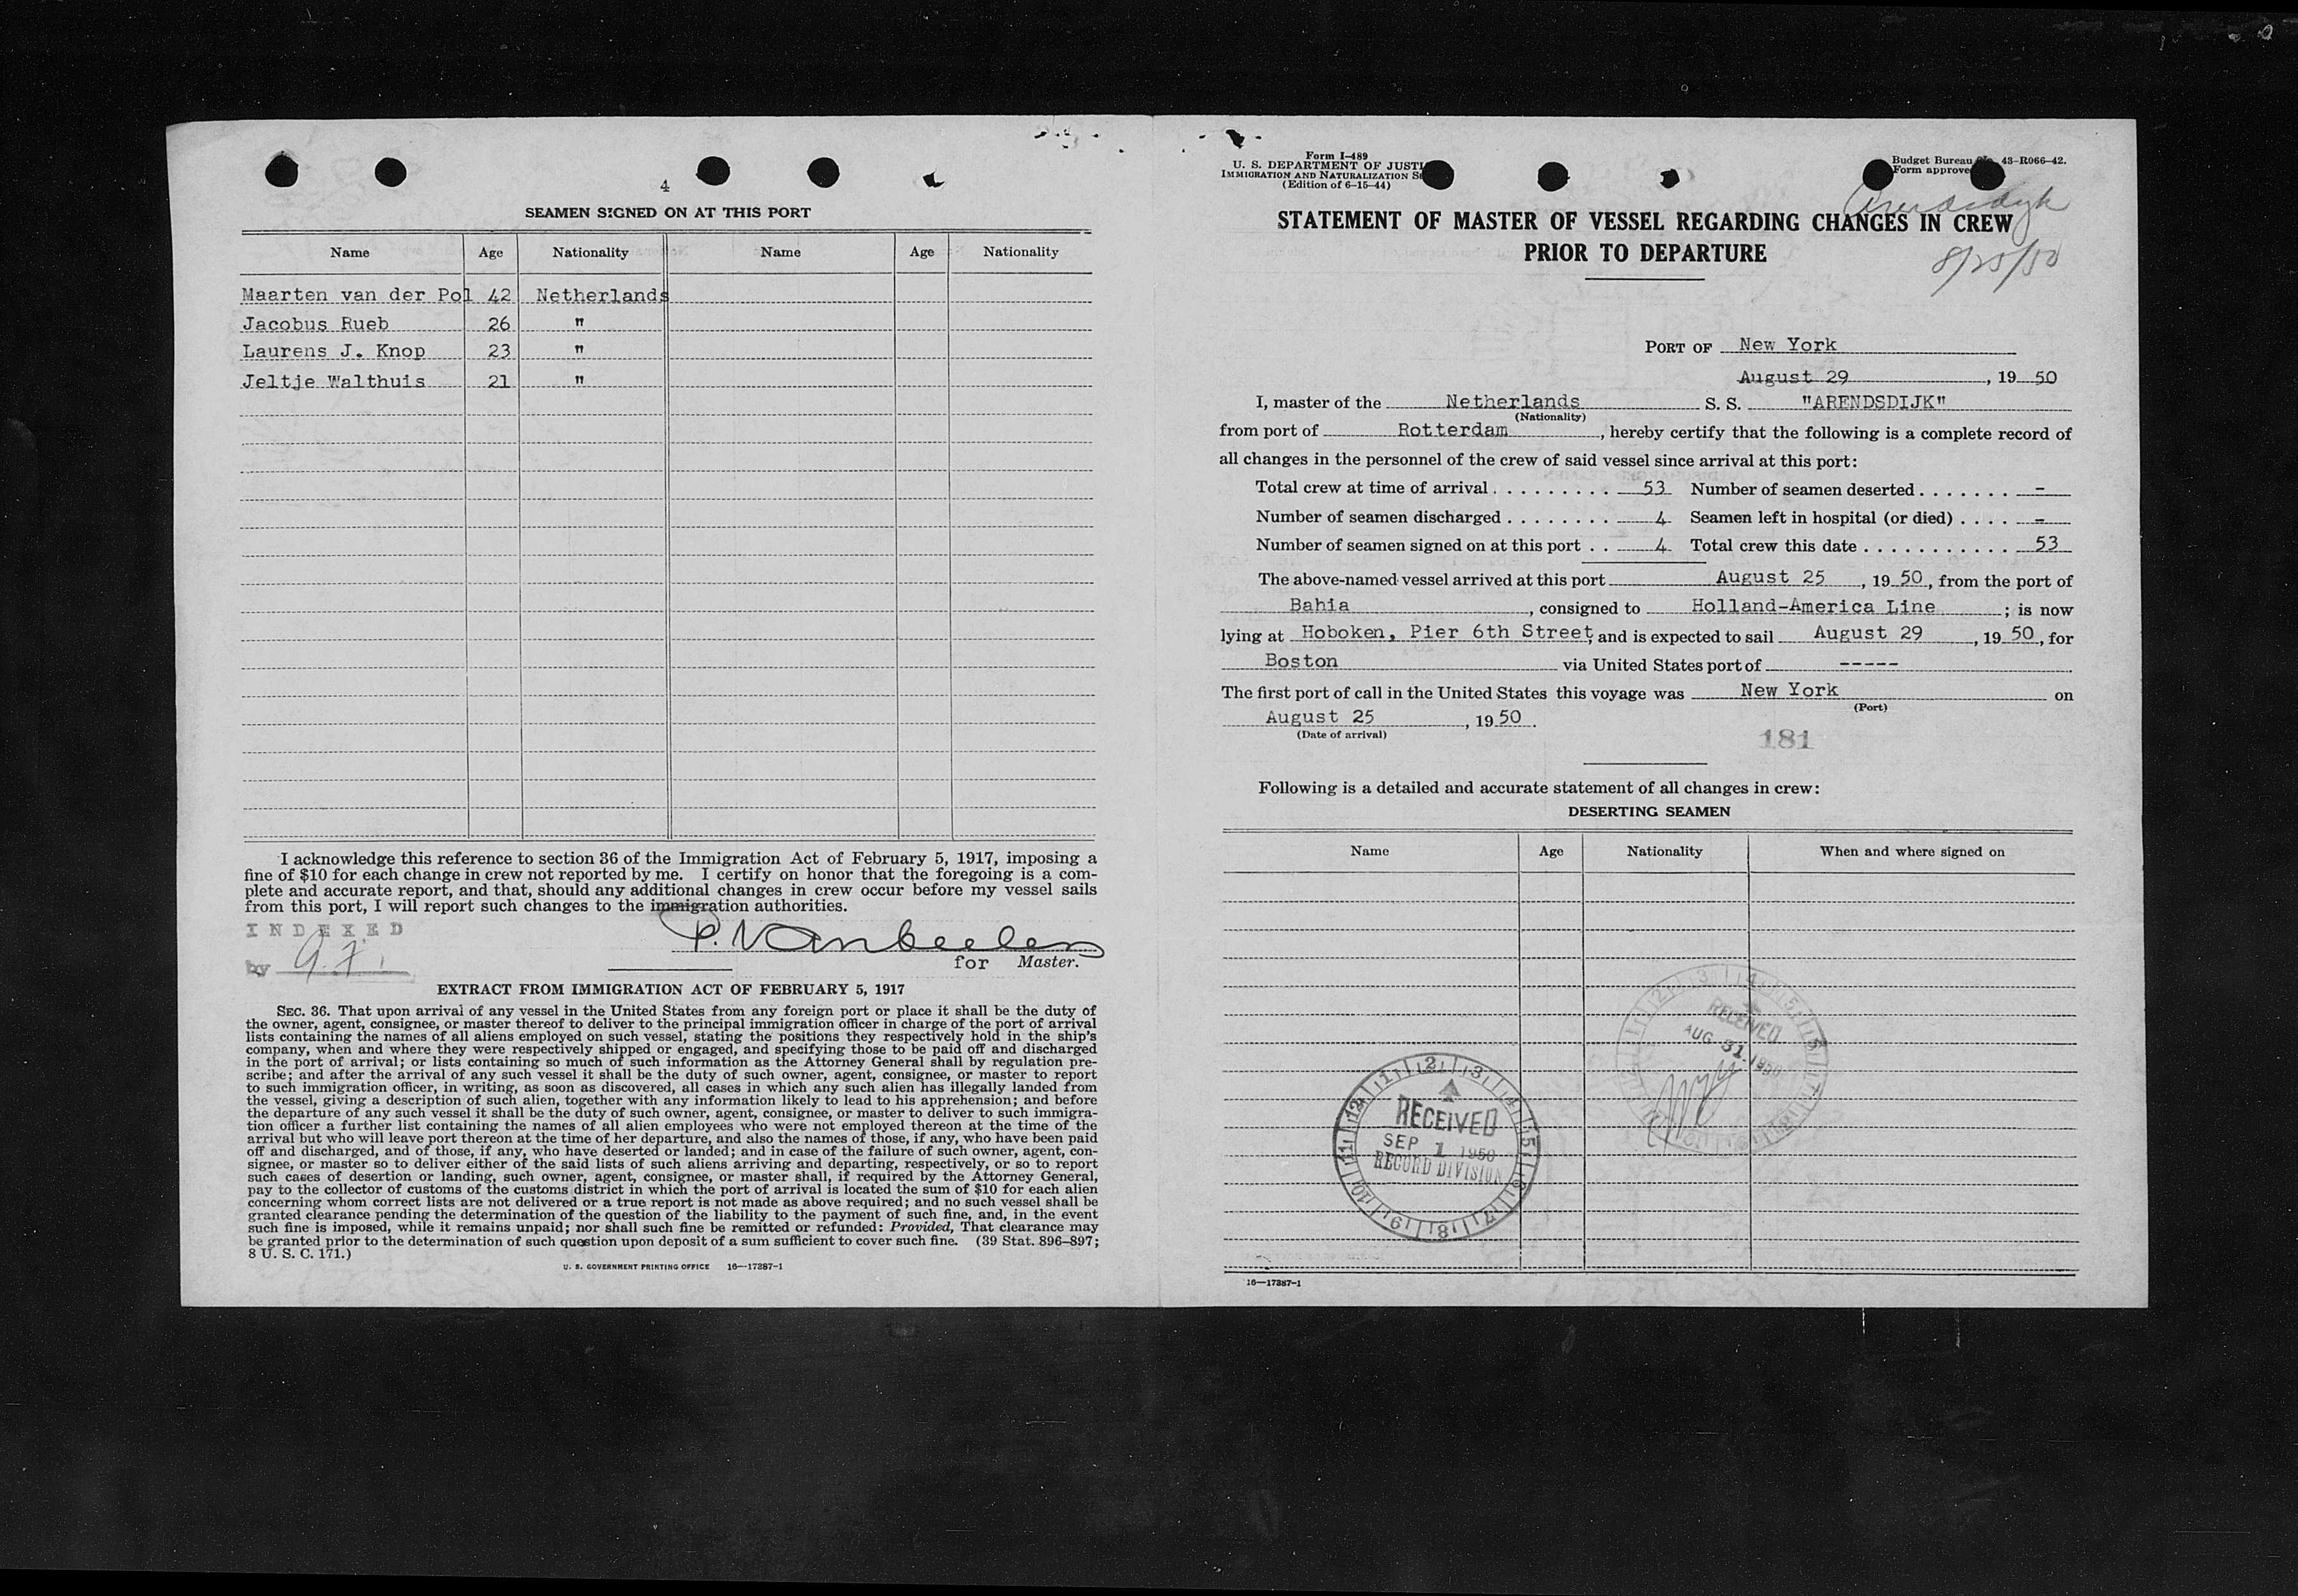 4
SEAMEN SIGNED ON AT THIS PORT
Name Age Nationality Name Age Nationality
Maarten van der Pol 42 Netherlands
Jacobus Rueb 26 "
Laurens J. Knop 23 "
Jeltje Walthuis 21 "
I acknowledge this reference to section 36 of the Immigration Act of February 5, 1917, imposing a
fine of $10 for each change in crew not reported by me. I certify on honor that the foregoing is a com-
plete and accurate report, and that, should any additional changes in crew occur before my vessel sails
from this port, I will report such changes to the immigration authorities.
INDEXED
by
for Master.
EXTRACT FROM IMMIGRATION ACT OF FEBRUARY 5, 1917
SEC. 36. That upon arrival of any vessel in the United States from any foreign port or place it shall be the duty of
the owner, agent, consignee, or master thereof to deliver to the principal immigration officer in charge of the port of arrival
lists containing the names of all aliens employed on such vessel, stating the positions they respectively hold in the ship's
company, when and where they were respectively shipped or engaged, and specifying those to be paid off and discharged
in the port of arrival; or lists containing so much of such information as the Attorney General shall by regulation pre-
scribe; and after the arrival of any such vessel it shall be the duty of such owner, agent, consignee, or master to report
to such immigration officer, in writing, as soon as discovered, all cases in which any such alien has illegally landed from
the vessel, giving a description of such alien, together with any information likely to lead to his apprehension; and before
the departure of any such vessel it shall be the duty of such owner, agent, consignee, or master to deliver to such immigra-
tion officer a further list containing the names of all alien employees who were not employed thereon at the time of the
arrival but who will leave port thereon at the time of her departure, and also the names of those, if any, who have been paid
off and discharged, and of those, if any, who have deserted or landed; and in case of the failure of such owner, agent, con-
signee, or master so to deliver either of the said lists of such aliens arriving and departing, respectively, or so to report
such cases of desertion or landing, such owner, agent, consignee, or master shall, if required by the Attorney General,
pay to the collector of customs of the customs district in which the port of arrival is located the sum of $10 for each alien
concerning whom correct lists are not delivered or a true report is not made as above required; and no such vessel shall be
granted clearance pending the determination of the question of the liability to the payment of such fine, and, in the event
such fine is imposed, while it remains unpaid; nor shall such fine be remitted or refunded: Provided, That clearance may
be granted prior to the determination of such question upon deposit of a sum sufficient to cover such fine. (39 Stat. 896-897;
8 U. S. C. 171.)
U. S. GOVERNMENT PRINTING OFFICE 16—17387-1
Form I-489
U. S. DEPARTMENT OF JUSTI
IMMIGRATION AND NATURALIZATION SE
(Edition of 6-15-44)
Budget Bureau No. 43-R066-42.
Form approve
Arendsdyk
8/25/50
STATEMENT OF MASTER OF VESSEL REGARDING CHANGES IN CREW
PRIOR TO DEPARTURE
PORT OF New York
August 29, 19 50
I, master of the Netherlands S. S. "ARENDSDIJK"
(Nationality)
from port of Rotterdam, hereby certify that the following is a complete record of
all changes in the personnel of the crew of said vessel since arrival at this port:
Total crew at time of arrival . . . . . . . . . 53 Number of seamen deserted . . . . . . . -
Number of seamen discharged . . . . . . . . 4 Seamen left in hospital (or died) . . . . -
Number of seamen signed on at this port . . 4 Total crew this date . . . . . . . . . . . 53
The above-named vessel arrived at this port August 25, 19 50, from the port of
Bahia, consigned to Holland-America Line; is now
lying at Hoboken, Pier 6th Street, and is expected to sail August 29, 19 50, for
Boston via United States port of -----
The first port of call in the United States this voyage was New York on
(Port)
August 25, 19 50.
(Date of arrival)
181
Following is a detailed and accurate statement of all changes in crew:
DESERTING SEAMEN
Name Age Nationality When and where signed on
RECEIVED
AUG 31 1950
RECEIVED
SEP 1 1950
RECORD DIVISION
16—17387-1